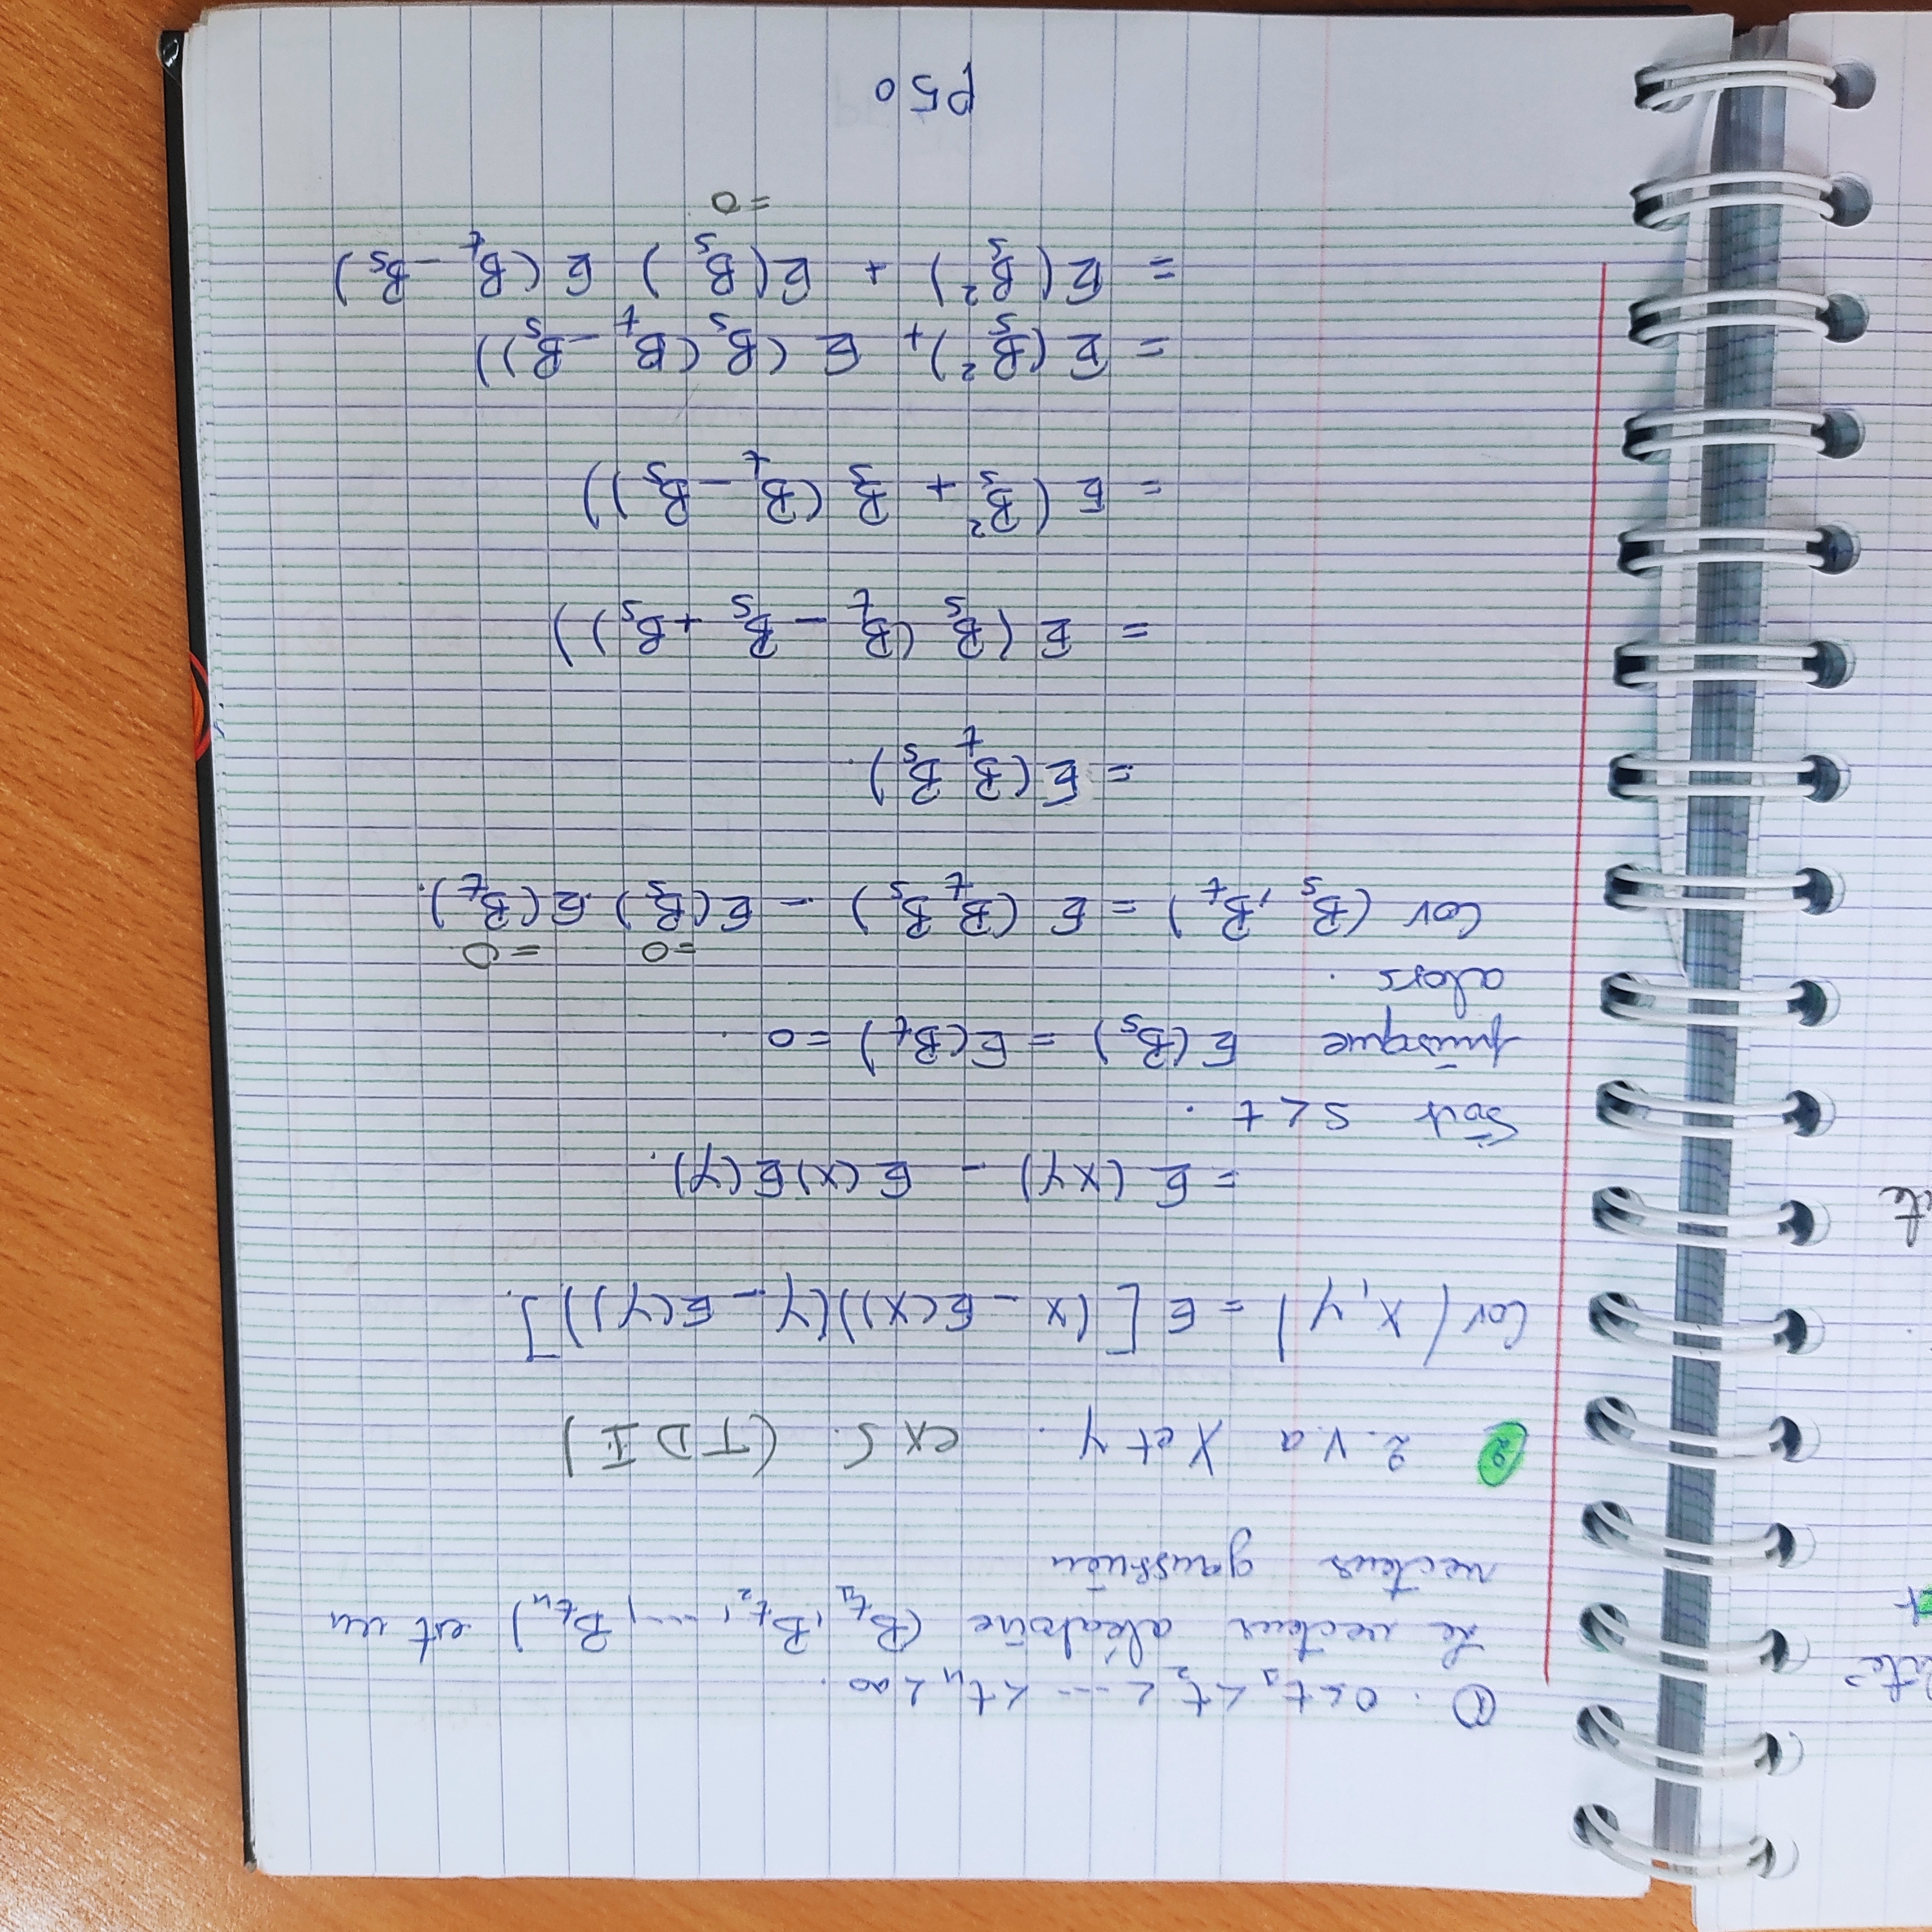 lité
t
te
① . 0 < t₁ < t₂ < --- < tₙ < ∞.
Le vecteur aléatoire (B_t₁, B_t₂, ---, B_tₙ) est un
vecteur gaussien
② 2. v. a X et Y. ex 5. (TD I)
Cov(X, Y) = E[(X - E(X))(Y - E(Y))].
= E(XY) - E(X)E(Y).
Soit s < t.
puisque E(B_s) = E(B_t) = 0.
alors.
=0 =0
Cov(B_s, B_t) = E(B_t B_s) - E(B_s).E(B_t).
= E(B_t B_s).
= E(B_s(B_t - B_s + B_s))
= E(B_s² + B_s(B_t - B_s))
= E(B_s²) + E(B_s(B_t - B_s))
= E(B_s²) + E(B_s) E(B_t - B_s)
=0
P50